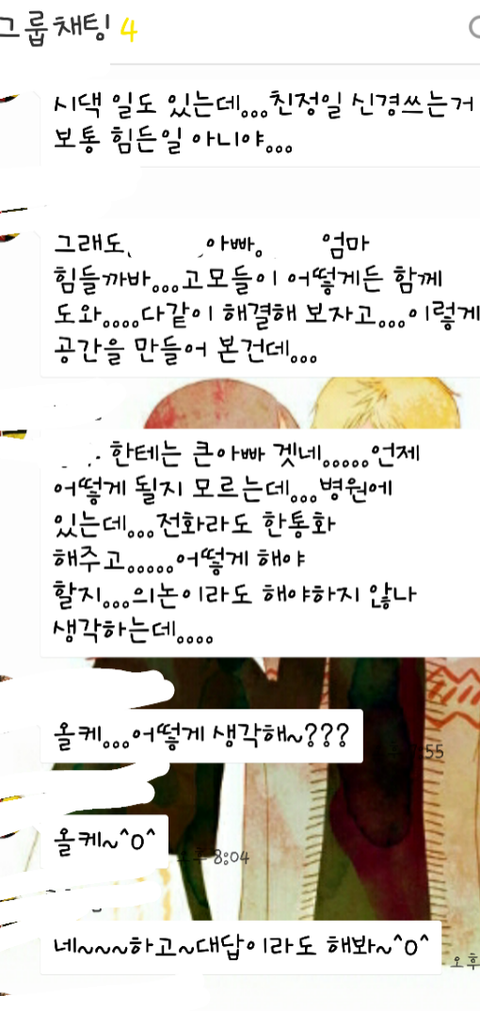 그룹채팅 4
시댁 일도 있는데...친정일 신경쓰는거
보통 힘든일 아니야...
그래도, 아빠. 엄마
힘들까바...고모들이 어떻게든 함께
도와....다같이 해결해 보자고...이렇게
공간을 만들어 본건데...
한테는 큰아빠 겟네.....언제
어떻게 될지 모르는데...병원에
있는데...전화라도 한통화
해주고.....어떻게 해야
할지...의논이라도 해야하지 않나
생각하는데....
올케...어떻게 생각해~???
55
올케~^0^
오후 8:04
네~~~하고~대답이라도 해봐~^0^
오후